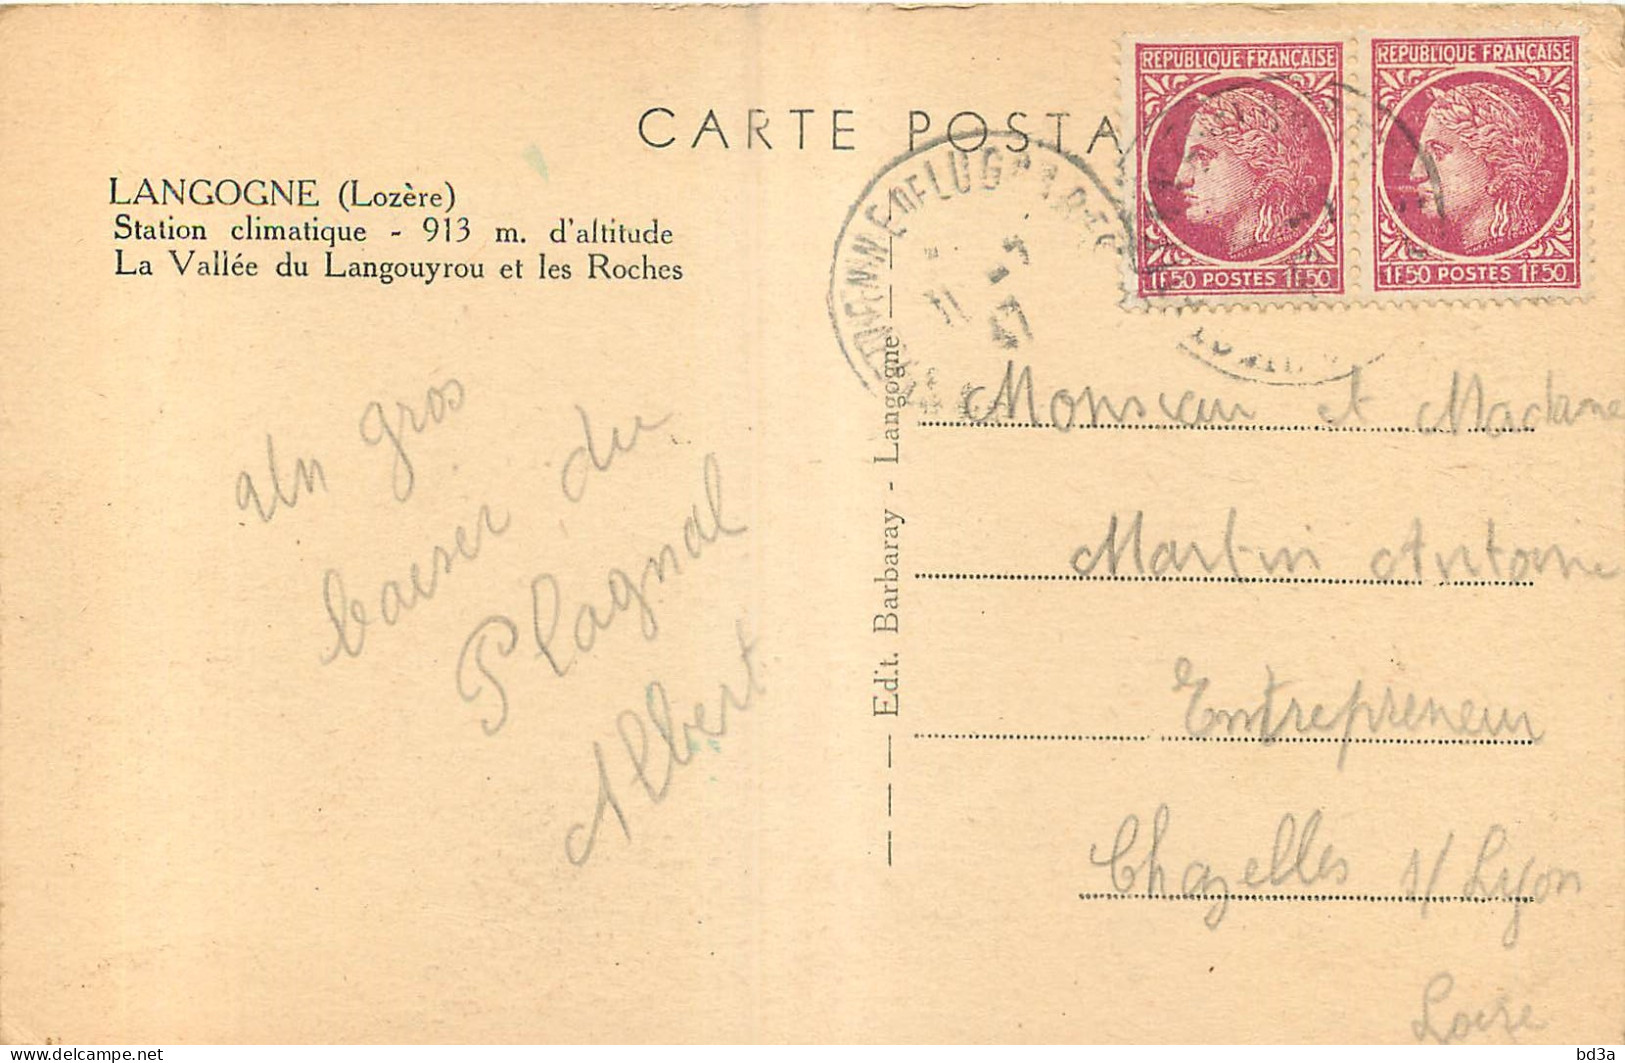 CARTE POSTA
RÉPUBLIQUE FRANÇAISE
1F50 POSTES 1F50
RÉPUBLIQUE FRANÇAISE
1F50 POSTES 1F50
LANGOGNE (Lozère)
Station climatique - 913 m. d'altitude
La Vallée du Langouyrou et les Roches
Un gros
baiser du
Plagnal
Albert
Edit. Barbaray - Langogne
Monsieur et Madame
Martin Antoine
Entrepreneur
Chazelles s/ Lyon
Loire
bd3a